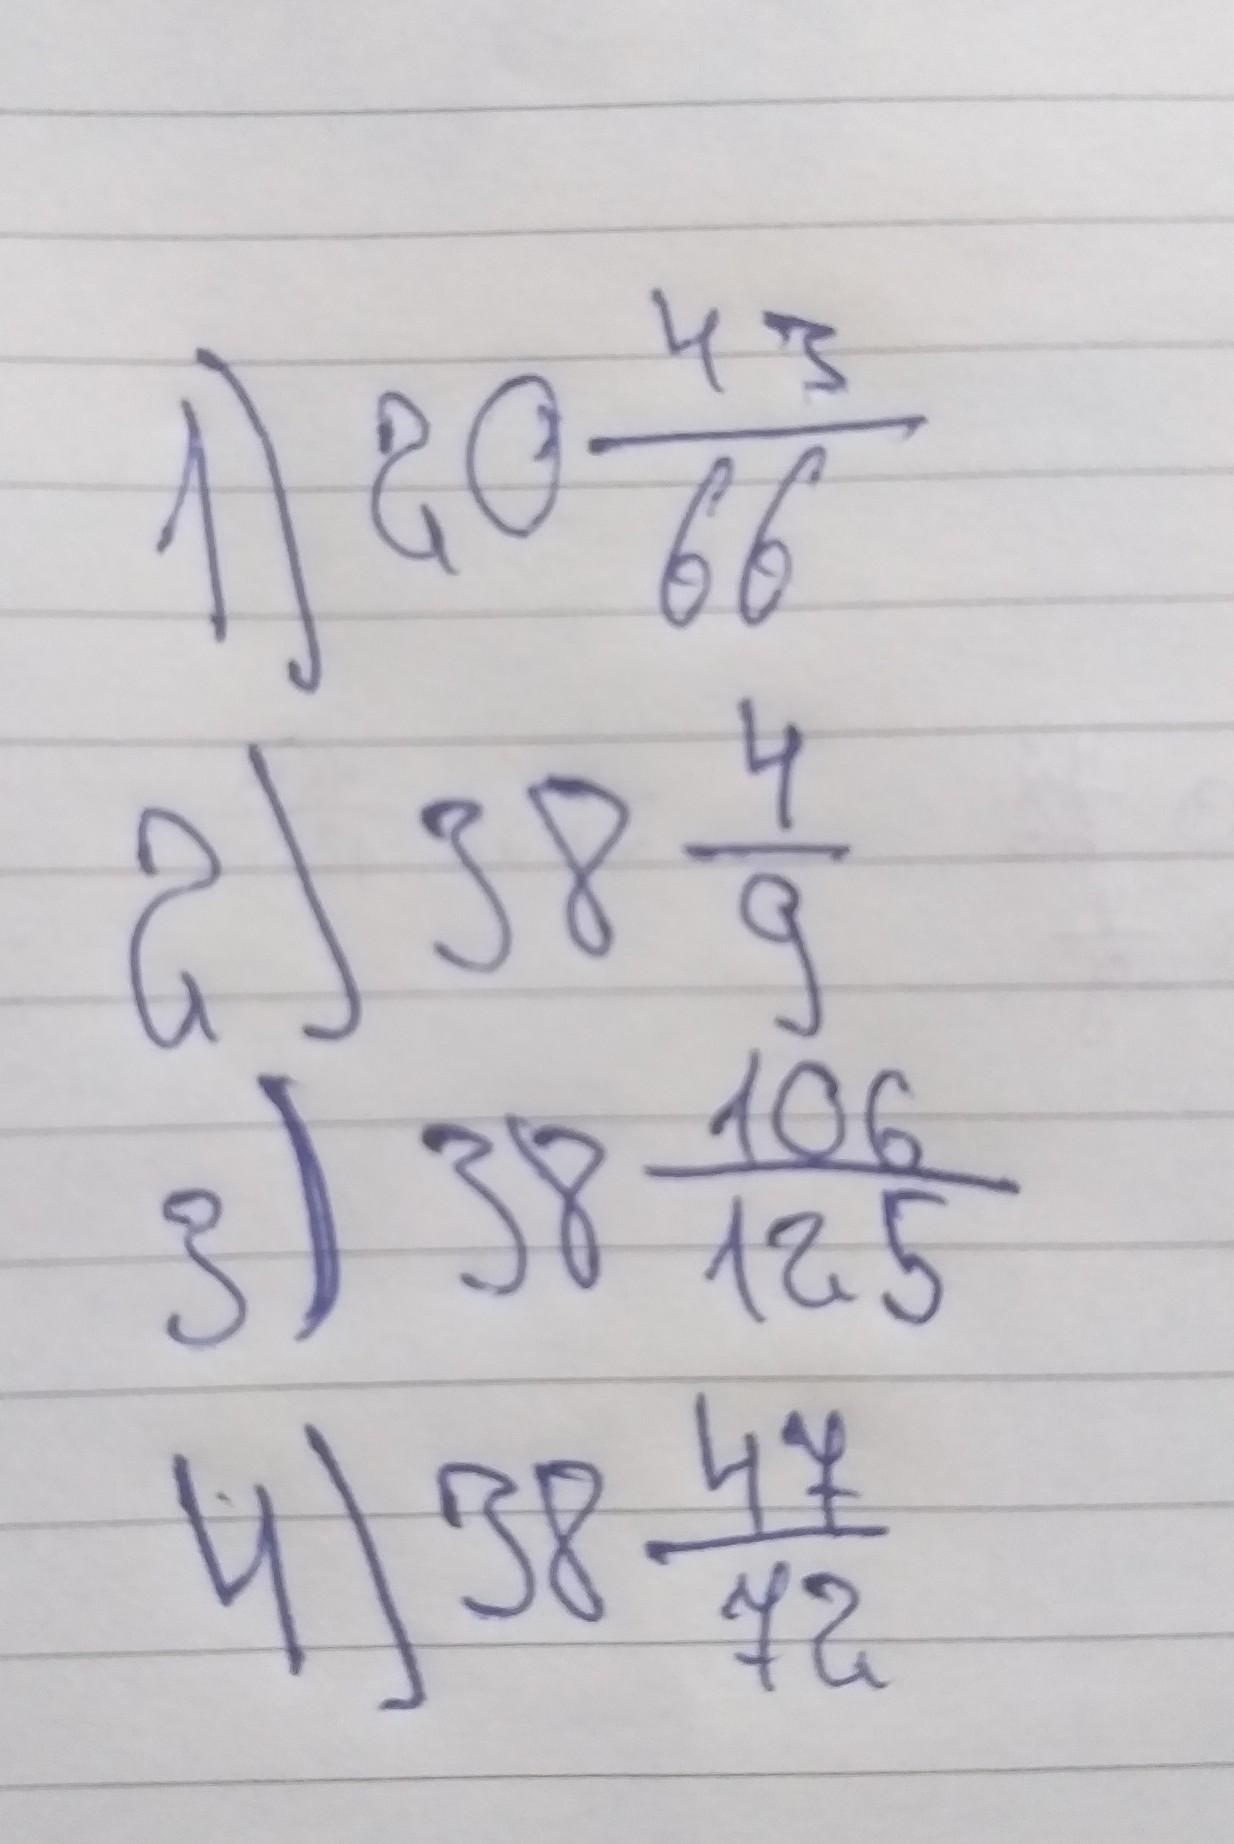 1) 20 43/66
2) 38 4/9
3) 38 106/125
4) 38 47/72